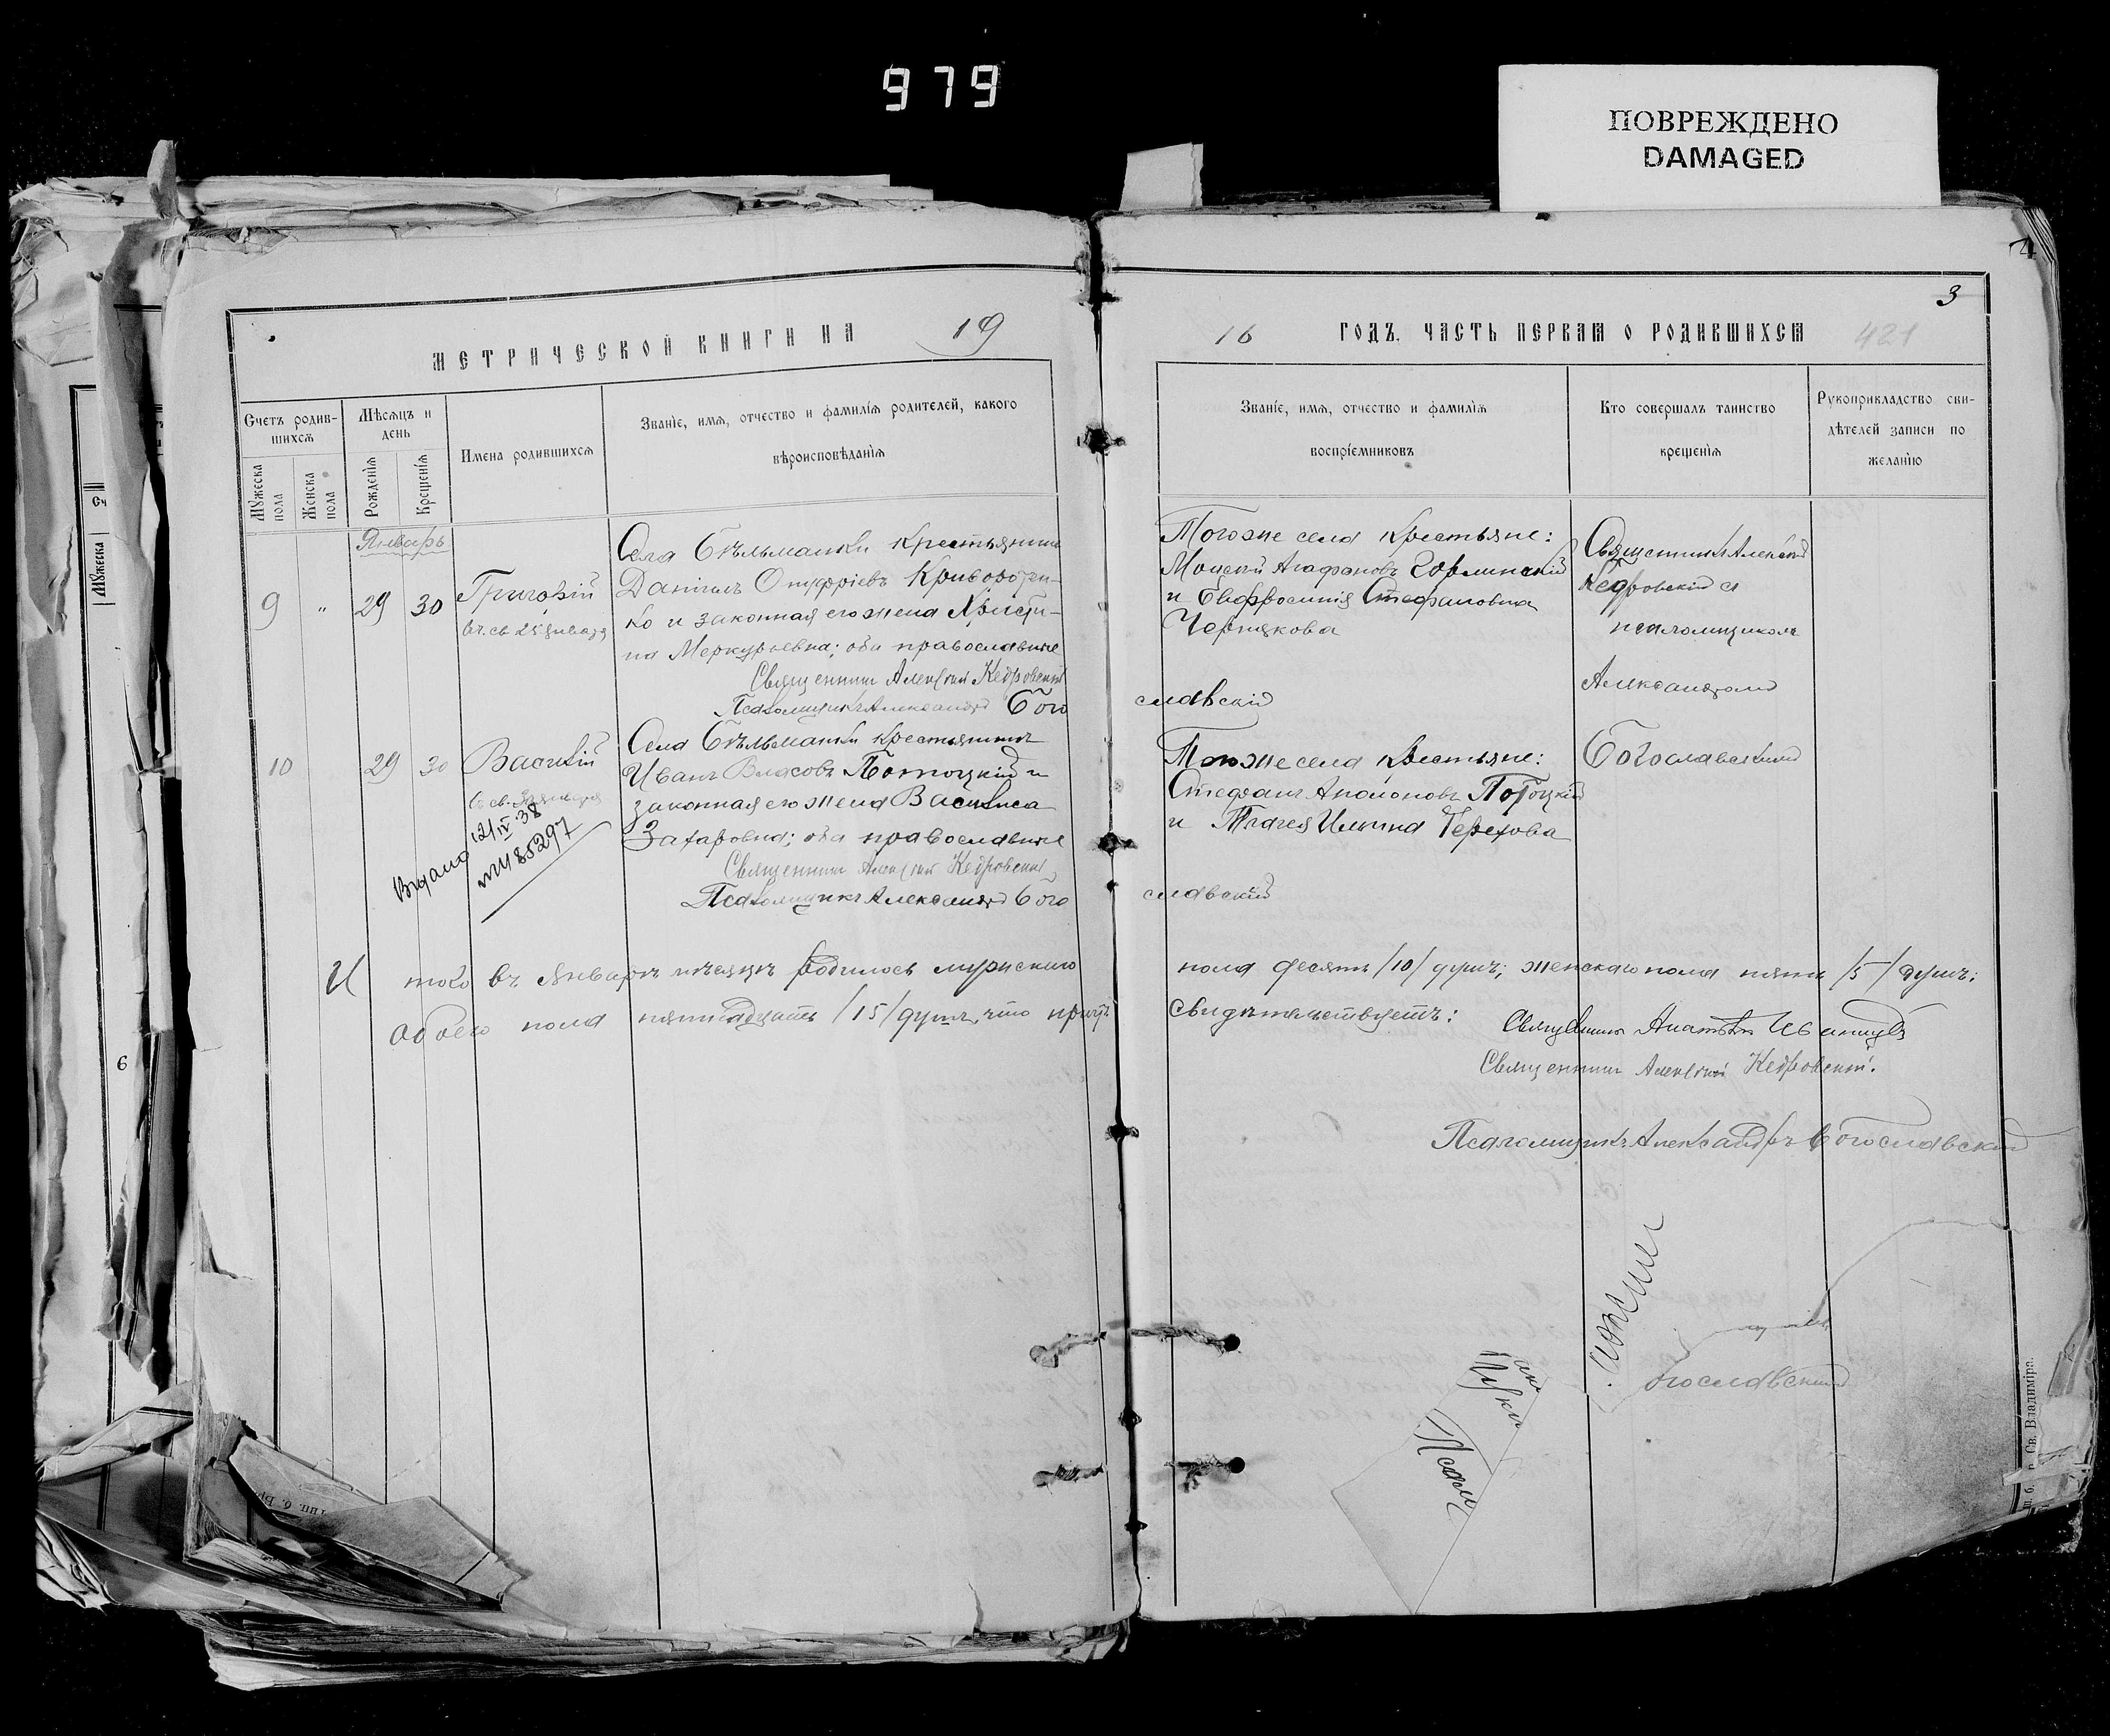 979
ПОВРЕЖДЕНО
DAMAGED
4
3
МЕТРИЧЕСКОЙ КНИГИ НА 19
16 ГОДЪ. ЧАСТЬ ПЕРВАЯ О РОДИВШИХСЯ 421
Счетъ родив-
шихся
Мѣсяцъ и
день
Мужеска
пола
Женска
пола
Рожденія
Крещенія
Имена родившихся
Званіе, имя, отчество и фамилія родителей, какого
вѣроисповѣданія
Званіе, имя, отчество и фамилія
воспріемниковъ
Кто совершалъ таинство
крещенія
Рукоприкладство сви-
дѣтелей записи по
желанію
Январь
9 " 29 30
Григорій
въ. св 25 января
Села Бѣльманки крестьянинъ
Даніилъ Онуфріевъ Криворотен-
ко и законная его жена Христи-
на Меркурьевна; оба православные
Священникъ Алексій Кедровскій
Псаломщикъ Александръ Бого
Тогоже села крестьяне:
Моисей Агафоновъ Горлинскій
и Евфросинія Стефановна
Чернякова
славскій
Священникъ Алексій
Кедровскій съ
псаломщикомъ
Александромъ
Богославскимъ
10 29 30
Василій
въ св. января
Выдано 21/IV-38
85297
Села Бѣльманки крестьянинъ
Иванъ Власовъ Потоцкій и
законная его жена Василиса
Захаровна; оба православные
Священникъ Алексій Кедровскій
Псаломщикъ Александръ Бого
Тогоже села крестьяне:
Стефанъ Аполоновъ Потоцкій
и Ильина Терехова
славскій
Итого въ Январѣ мѣсяцѣ родилось мужскаго
пола десять /10/ душъ; женскаго пола пять /5/ душъ;
обоего пола пятнадцать /15/ душъ, что причтъ
свидѣтельствуетъ:
Священникъ
Священникъ Алексій Кедровскій.
Псаломщикъ Александръ Богославскій
Псалм
огославский
Св. Владиміра.
Сч
Мужеска
6
Тип. б. Бр